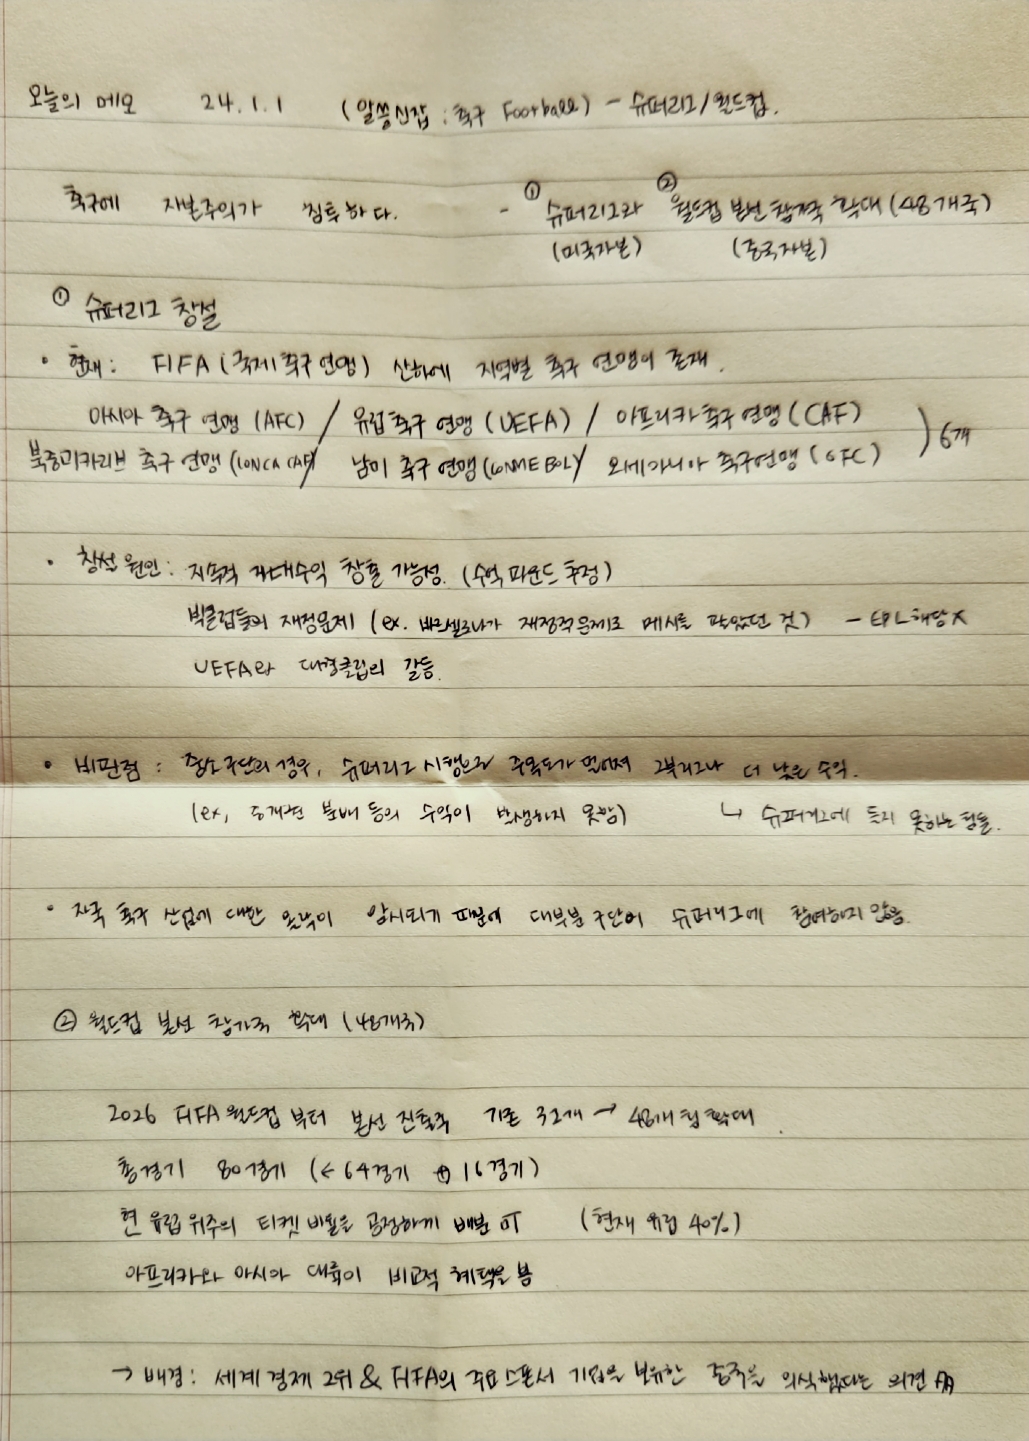 오늘의 메모 24.1.1 (알쓸신잡 : 축구 Football) - 슈퍼리그/월드컵.
축구에 자본주의가 침투하다. - ① 슈퍼리그와 ② 월드컵 본선 참가국 확대 (48개국)
(미국자본) (중국자본)
① 슈퍼리그 창설
• 현재 : FIFA (국제축구연맹) 산하에 지역별 축구 연맹이 존재.
아시아 축구 연맹 (AFC) / 유럽축구 연맹 (UEFA) / 아프리카축구연맹 (CAF)
북중미카리브 축구 연맹 (CONCACAF) / 남미 축구 연맹 (CONMEBOL) / 오세아니아 축구연맹 (OFC) ) 6개
• 창설 원인 : 지속적 막대수익 창출 가능성. (수억 파운드 추정)
빅클럽들의 재정문제 (ex. 바르셀로나가 재정적문제로 메시를 팔았던 것) - EPL해당X
UEFA와 대형클럽의 갈등.
• 비판점 : 중소구단의 경우, 슈퍼리그 시행으로 주목도가 떨어져 2부리그나 더 낮은 수익.
(ex, 중계권 분배 등의 수익이 발생하지 못함) ↳ 슈퍼리그에 들지 못하는 팀들.
• 자국 축구 산업에 대한 몰락이 암시되기 때문에 대부분 구단이 슈퍼리그에 참여하지 않음.
② 월드컵 본선 참가국 확대 (48개국)
2026 FIFA 월드컵 부터 본선 진출국 기존 32개 → 48개 팀 확대.
총경기 80경기 (← 64경기 ⊕ 16경기)
현 유럽 위주의 티켓 비율을 공정하게 배분 (현재 유럽 40%)
아프리카와 아시아 대륙이 비교적 혜택을 봄
→ 배경 : 세계 경제 2위 & FIFA의 주요스폰서 기업을 보유한 중국을 의식했다는 의견